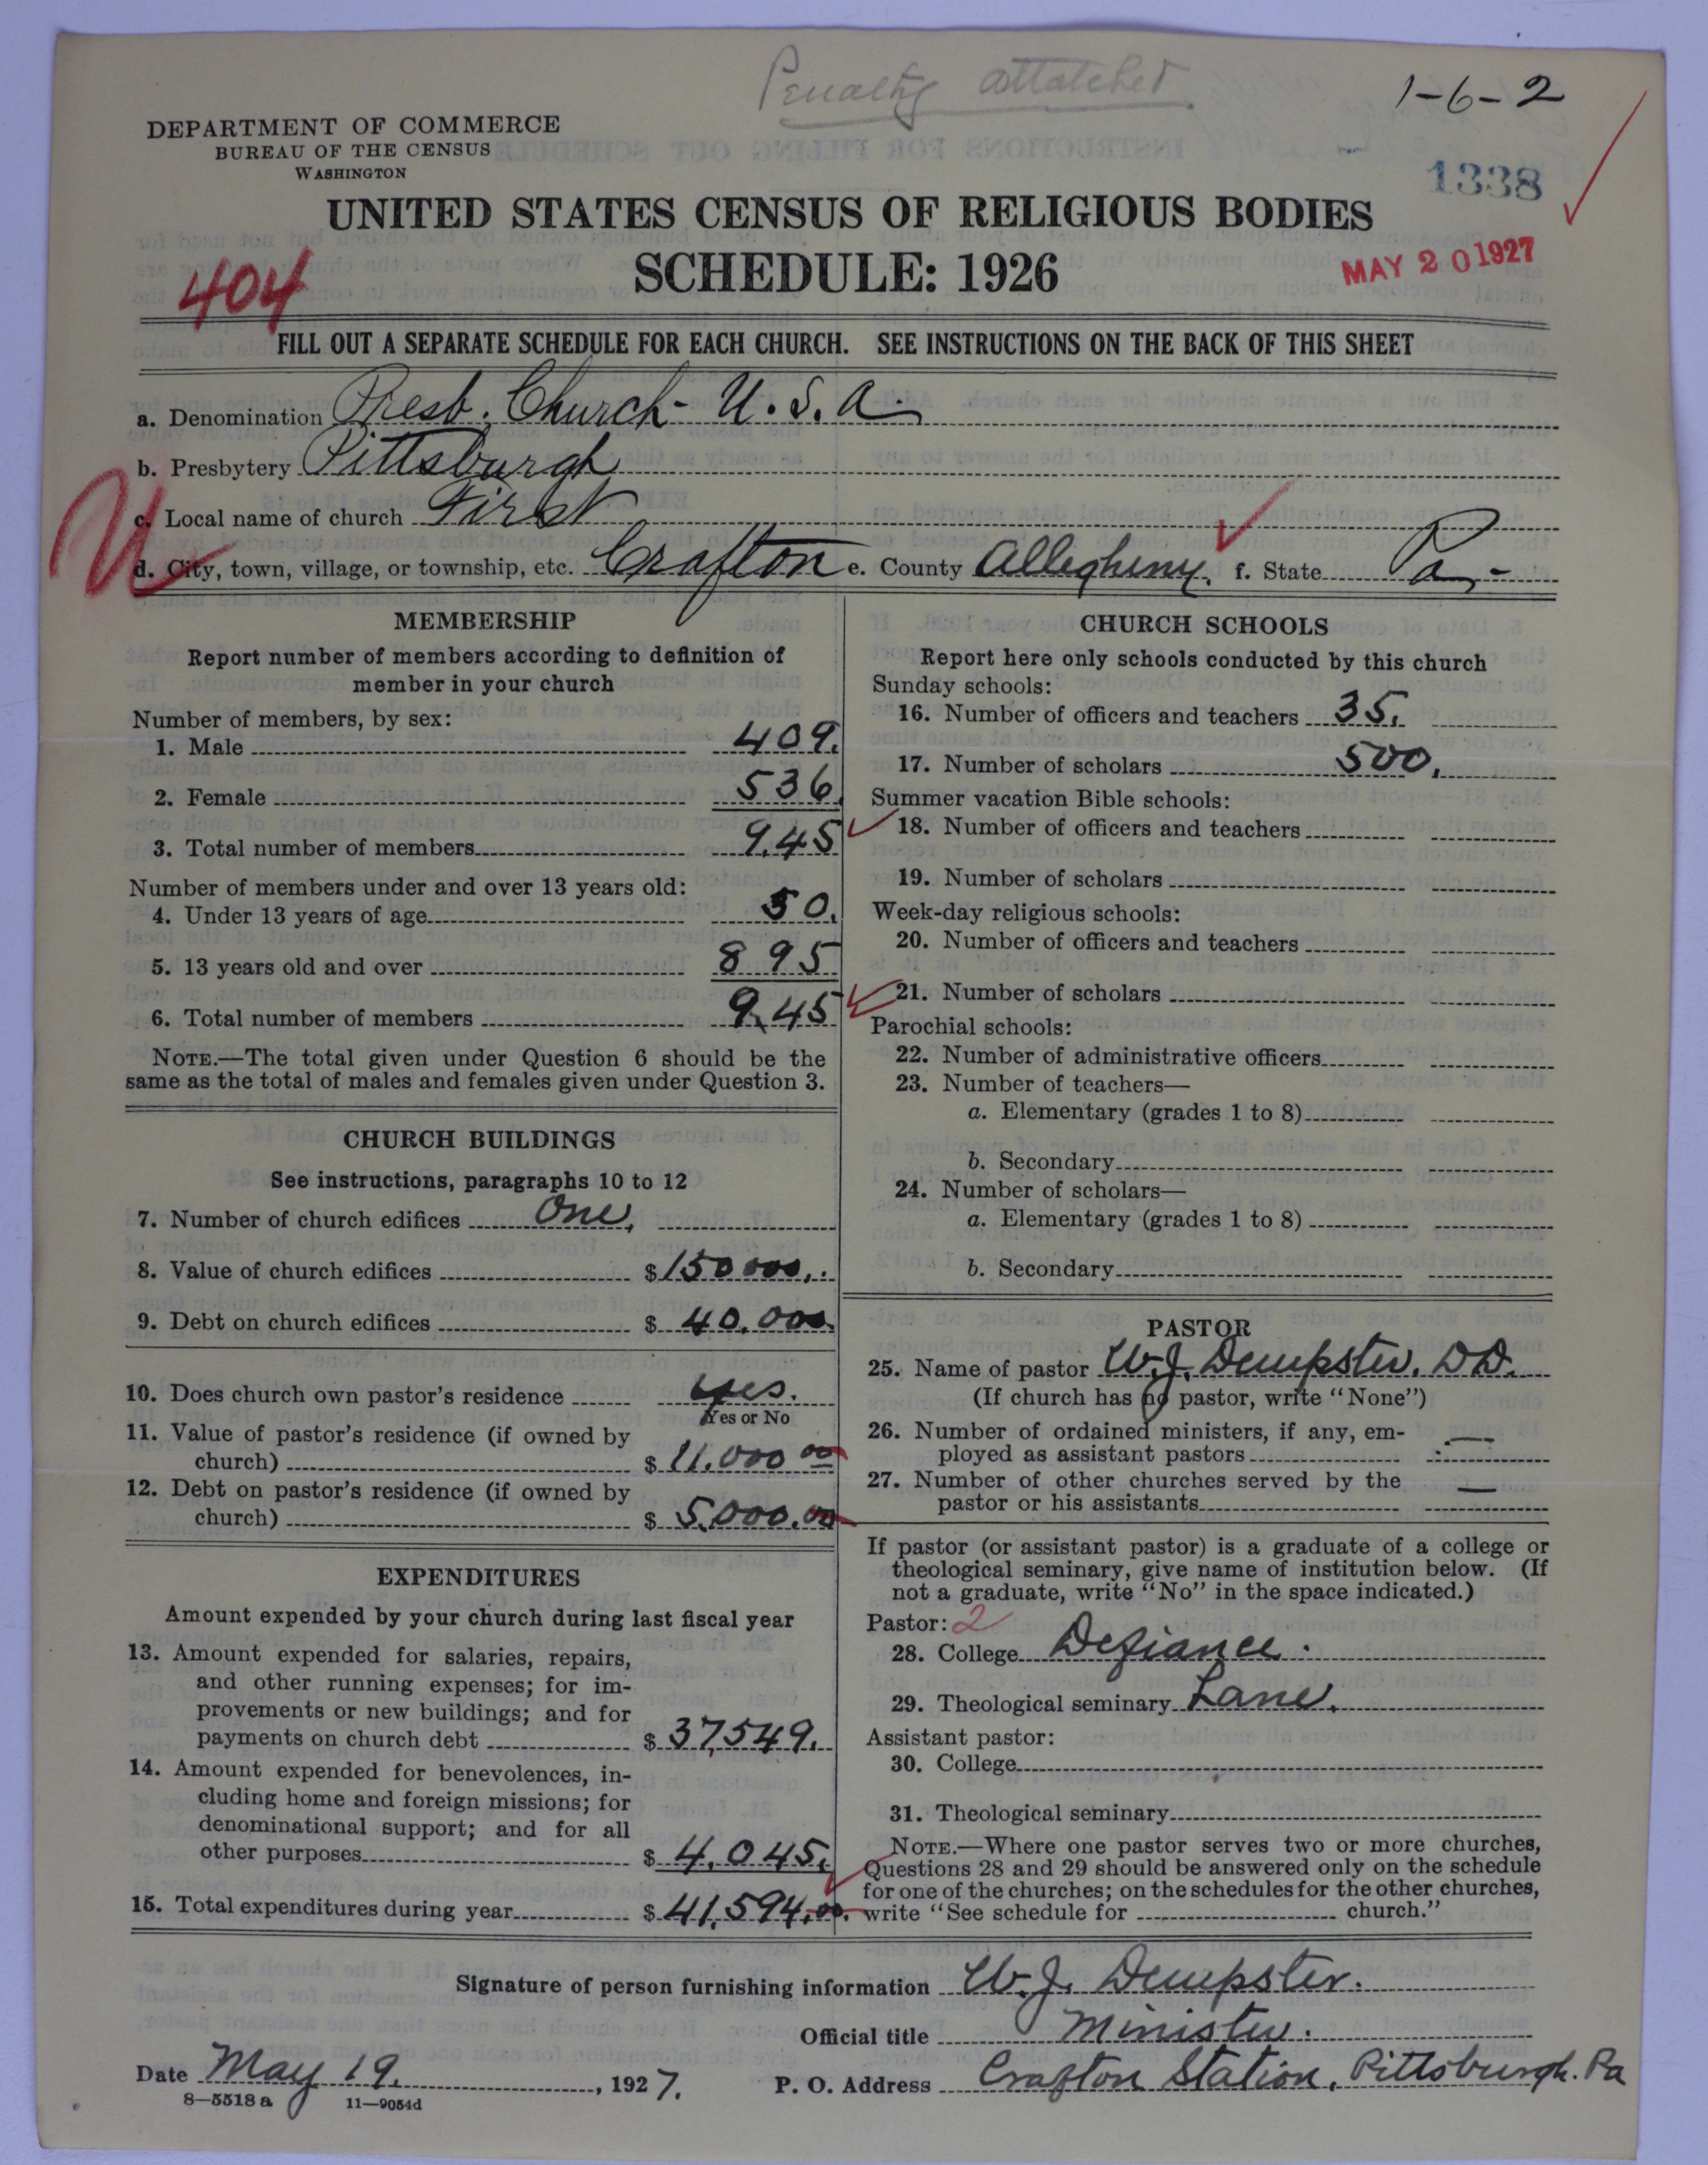 Penalty attatched
1-6-2
DEPARTMENT OF COMMERCE
BUREAU OF THE CENSUS
WASHINGTON
1338
UNITED STATES CENSUS OF RELIGIOUS BODIES
SCHEDULE: 1926
MAY 20 1927
404
FILL OUT A SEPARATE SCHEDULE FOR EACH CHURCH. SEE INSTRUCTIONS ON THE BACK OF THIS SHEET
a. Denomination Presb. Church - U.S.A.
b. Presbytery Pittsburgh
c. Local name of church First
d. City, town, village, or township, etc. Crafton e. County Allegheny. f. State Pa.
MEMBERSHIP
Report number of members according to definition of
member in your church
Number of members, by sex:
1. Male 409.
2. Female 536.
3. Total number of members 945
Number of members under and over 13 years old:
4. Under 13 years of age 50.
5. 13 years old and over 895
6. Total number of members 945
NOTE.—The total given under Question 6 should be the
same as the total of males and females given under Question 3.
CHURCH BUILDINGS
See instructions, paragraphs 10 to 12
7. Number of church edifices One.
8. Value of church edifices $150000.
9. Debt on church edifices $ 40.000.
10. Does church own pastor's residence yes.
Yes or No
11. Value of pastor's residence (if owned by
church) $ 11.000 00
12. Debt on pastor's residence (if owned by
church) $ 5.000.00
EXPENDITURES
Amount expended by your church during last fiscal year
13. Amount expended for salaries, repairs,
and other running expenses; for im-
provements or new buildings; and for
payments on church debt $ 37,549.
14. Amount expended for benevolences, in-
cluding home and foreign missions; for
denominational support; and for all
other purposes $ 4,045.
15. Total expenditures during year $ 41,594.00.
CHURCH SCHOOLS
Report here only schools conducted by this church
Sunday schools:
16. Number of officers and teachers 35.
17. Number of scholars 500.
Summer vacation Bible schools:
18. Number of officers and teachers
19. Number of scholars
Week-day religious schools:
20. Number of officers and teachers
21. Number of scholars
Parochial schools:
22. Number of administrative officers
23. Number of teachers—
a. Elementary (grades 1 to 8)
b. Secondary
24. Number of scholars—
a. Elementary (grades 1 to 8)
b. Secondary
PASTOR
25. Name of pastor W.J. Dempster. D.D.
(If church has no pastor, write "None")
26. Number of ordained ministers, if any, em-
ployed as assistant pastors —
27. Number of other churches served by the
pastor or his assistants —
If pastor (or assistant pastor) is a graduate of a college or
theological seminary, give name of institution below. (If
not a graduate, write "No" in the space indicated.)
Pastor: 2
28. College Defiance.
29. Theological seminary Lane.
Assistant pastor:
30. College
31. Theological seminary
NOTE.—Where one pastor serves two or more churches,
Questions 28 and 29 should be answered only on the schedule
for one of the churches; on the schedules for the other churches,
write "See schedule for church."
Signature of person furnishing information W.J. Dempster.
Official title Minister.
Date May 19., 1927. P. O. Address Crafton Station, Pittsburgh. Pa
8—5518 a 11—9054d